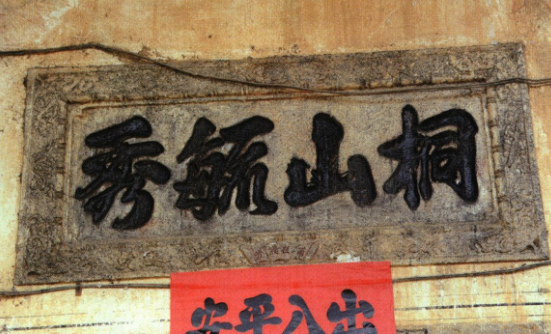 桐山毓秀
出入平安